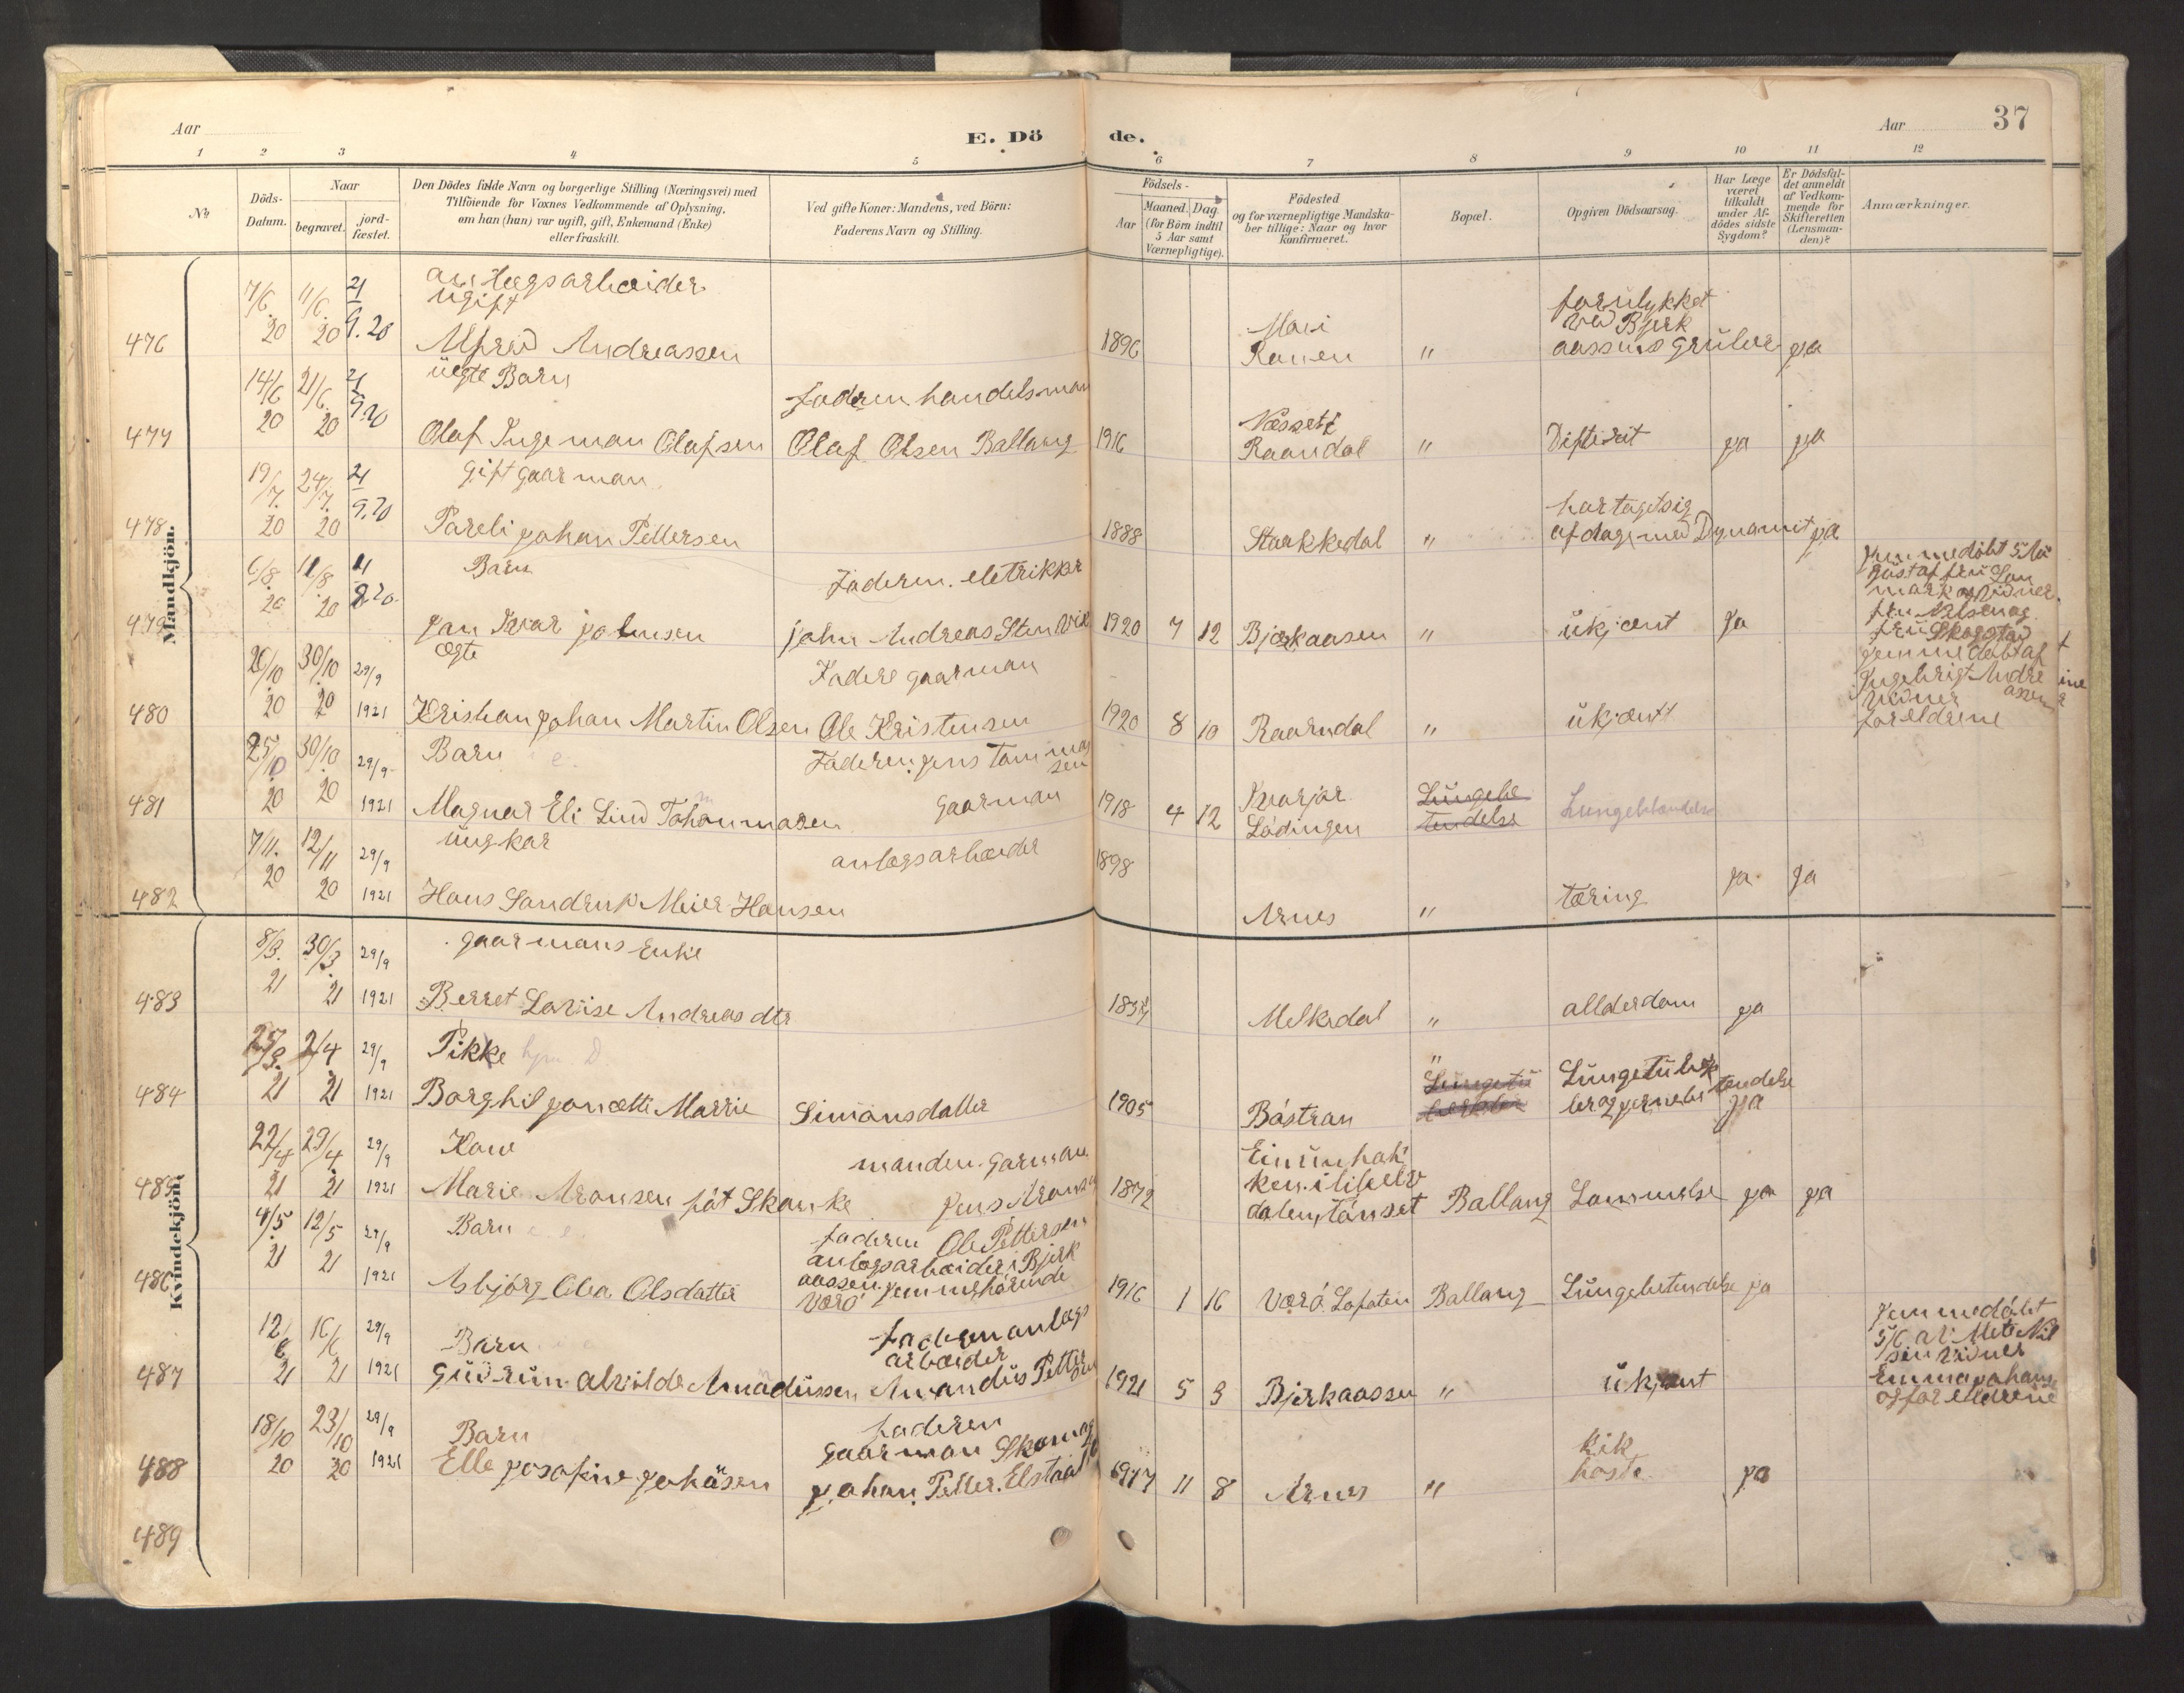 Aar
E. Dö de.
Aar 37
1 2 3 4 5 6 7 8 9 10 11 12
No
Döds-Datum.
Naar
begravet.
jord-fæstet.
Den Dödes fulde Navn og borgerlige Stilling (Næringsvei) med
Tilföiende for Voxnes Vedkommende af Oplysning.
om han (hun) var ugift, gift, Enkemand (Enke)
eller fraskilt.
Ved gifte Koner: Mandens, ved Börn:
Faderens Navn og Stilling.
Födsels-
Aar
Maaned. Dag
(for Börn indtil
5 Aar samt
Værnepligtige).
Födested
og for værnepligtige Mandska-
ber tillige: Naar og hvor
konfirmeret.
Bopæl.
Opgiven Dödsaarsag.
Har Læge
været
tilkaldt
under Af-
dödes sidste
Sygdom?
Er Dödsfal-
det anmeldt
af Vedkom-
mende for
Skifteretten
(Lensman-
den)?
Anmærkninger.
Mandkjön.
476 7/6 20 11/6 20 21/9.20
anlægsarbeider
ugift
Alfred Andreassen
1896
Moi
Ranen
"
forulykket
ved Bjerk
aassens gruber
ja
477 14/6 20 21/6 20 21/9.20
uegte Barn
Olaf Ingeman Olafsen
faderen handelsman
Olaf Olsen Ballang
1916
Næsset i
Raandal
"
Difterit
ja
ja
478 19/7. 20 24/7. 20 21/9.20
Gift gaarman
Pareli johan Pettersen
1888
Starkkedal
"
har taget sig
af dage med Dynamit
ja
479 6/8. 20 11/8 20
Barn
jan Ivar johnsen
Faderen. eletrikker
john Andreas Stenvik
1920 7 12
Bjerkaasen
"
ukjent
ja
480 26/10 20 30/10 20 29/9 1921
egte
Kristian johan Martin Olsen
Fadere gaarman
Ole Kristensen
1920 8 10
Raarndal
"
ukjent
jemmedøbt af
Ingebrigt Andre
assen
vidner
foreldrene
481 25/10 20 30/10 20 29/9 1921
Barn
Magnar Eli Lind Tohommasen
Faderen jens Tommas
sen
gaarman
1918 4 12
Kvarjar
Lødingen
Lungebe
tendelse
Lungebetendelse
482 7/11. 20 12/11 20 29/9 1921
ungkar
Hans Sandrup Meier Hansen
anlegsarbeider
1898
Arnes
"
tæring
ja
ja
Kvindekjön.
483 8/3. 21 30/3. 21 29/9 1921
gaarmans Enke
Berret Lovise Andreasdtr
1837
Melkedal
"
allderdom
ja
484 25/3. 21 2/4 21 29/9 1921
Pikke
Borghil jonette Marrie
Simonsdatter
1905
Båstran
"
Lungetu
berkler
Lungetuberk
ler og jernebetendelse
ja
485 22/4 21 29/4 21 29/9 1921
Kone
Marie Aronsen føt Skanke
manden. garman
jens Aronsen
1872
dalen, Tönset
Ballang
Lammelse
ja
ja
486 4/5 21 12/5 21 29/9 1921
Barn
Asbjørg Olea Olsdatter
faderen Ole Pettersen
anlegsarbeider i Bjerk
aassen. jemmehørende
Værö
1916 1 16
Værö Lofoten
Ballang
Lungebetendelse
ja
487 12/6 21 16/6 21 29/9 1921
Barn
Gudrun alvilde Amadussen
Faderen anlegs
arbeider
Amandus Petter
sen
1921 5 3
Bjerkaassen
"
ukjent
jemmedøbt
5/6 av Mete Nil
sen vidner
Emma johans
og foreldrene
488 18/10 20 23/10 20 29/9 1921
Barn
Elle josofine johäsen
faderen
gaarman Skomag
johan Petter. Elstad
1917 11 8
Arnes
"
kik
hoste
ja
489